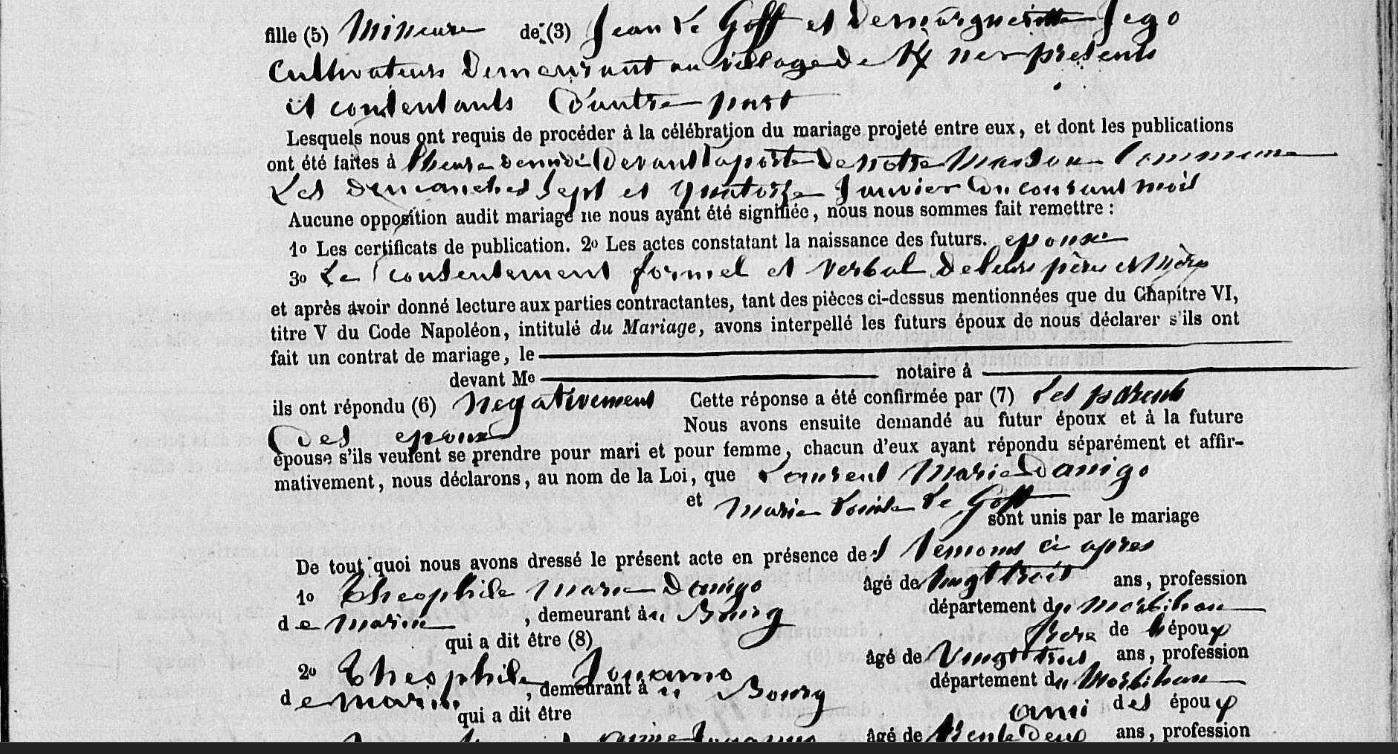 fille (5) Mineure de (3) Jean Le Goff et de marguerite Jego
Cultivateurs Demeurant au village de Kner présents
et consentants D'autre part
Lesquels nous ont requis de procéder à la célébration du mariage projeté entre eux, et dont les publications
ont été faites à l'heure de midi Devant la porte De notre Maison Commune
Les dimanches sept et quatorze Janvier Du courant mois
Aucune opposition audit mariage ne nous ayant été signifiée, nous nous sommes fait remettre :
1o Les certificats de publication. 2o Les actes constatant la naissance des futurs. epoux
3o Le consentement formel et verbal De leurs pères et Mères
et après avoir donné lecture aux parties contractantes, tant des pièces ci-dessus mentionnées que du Chapitre VI,
titre V du Code Napoléon, intitulé du Mariage, avons interpellé les futurs époux de nous déclarer s'ils ont
fait un contrat de mariage, le
devant Me notaire à
ils ont répondu (6) negativement Cette réponse a été confirmée par (7) Les parents
Des epoux Nous avons ensuite demandé au futur époux et à la future
épouse s'ils veulent se prendre pour mari et pour femme, chacun d'eux ayant répondu séparément et affir-
mativement, nous déclarons, au nom de la Loi, que Laurent Marie Danigo
et Marie Louise Le Goff
sont unis par le mariage
De tout quoi nous avons dressé le présent acte en présence des Témoins ci apres
1o Theophile Marie Danigo âgé de vingt trois ans, profession
de marin, demeurant au Bourg département du Morbihan
qui a dit être (8) frere de l'époux
2o Theophile Jouanno âgé de Vingt trois ans, profession
de marin, demeurant à u Bourg département du Morbihan
qui a dit être ami des époux
Jouanno âgé de Trente Deux ans, profession